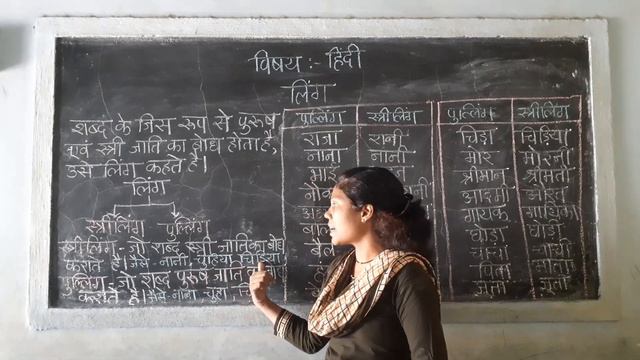 विषय :- हिंदी
लिंग
शब्द के जिस रूप से पुरूष
एवं स्त्री जाति का बोध होता है,
उसे लिंग कहते है।
लिंग
स्त्रीलिंग पुल्लिंग
स्त्रीलिंग - जो शब्द स्त्री जाति का बोध
कराते है। जैसे- नानी, चुहिया चिड़िया
पुल्लिंग - जो शब्द पुरूष जाति
कराते है। जैसे- नाना चूहा
पुल्लिंग स्त्रीलिंग पुल्लिंग स्त्रीलिंग
राजा रानी चिड़ा चिड़िया
नाना नानी मोर मोरनी
भाई श्रीमान श्रीमती
आदमी औरत
गायक गायिका
घोड़ा घोड़ी
चाचा चाची
पिता माता